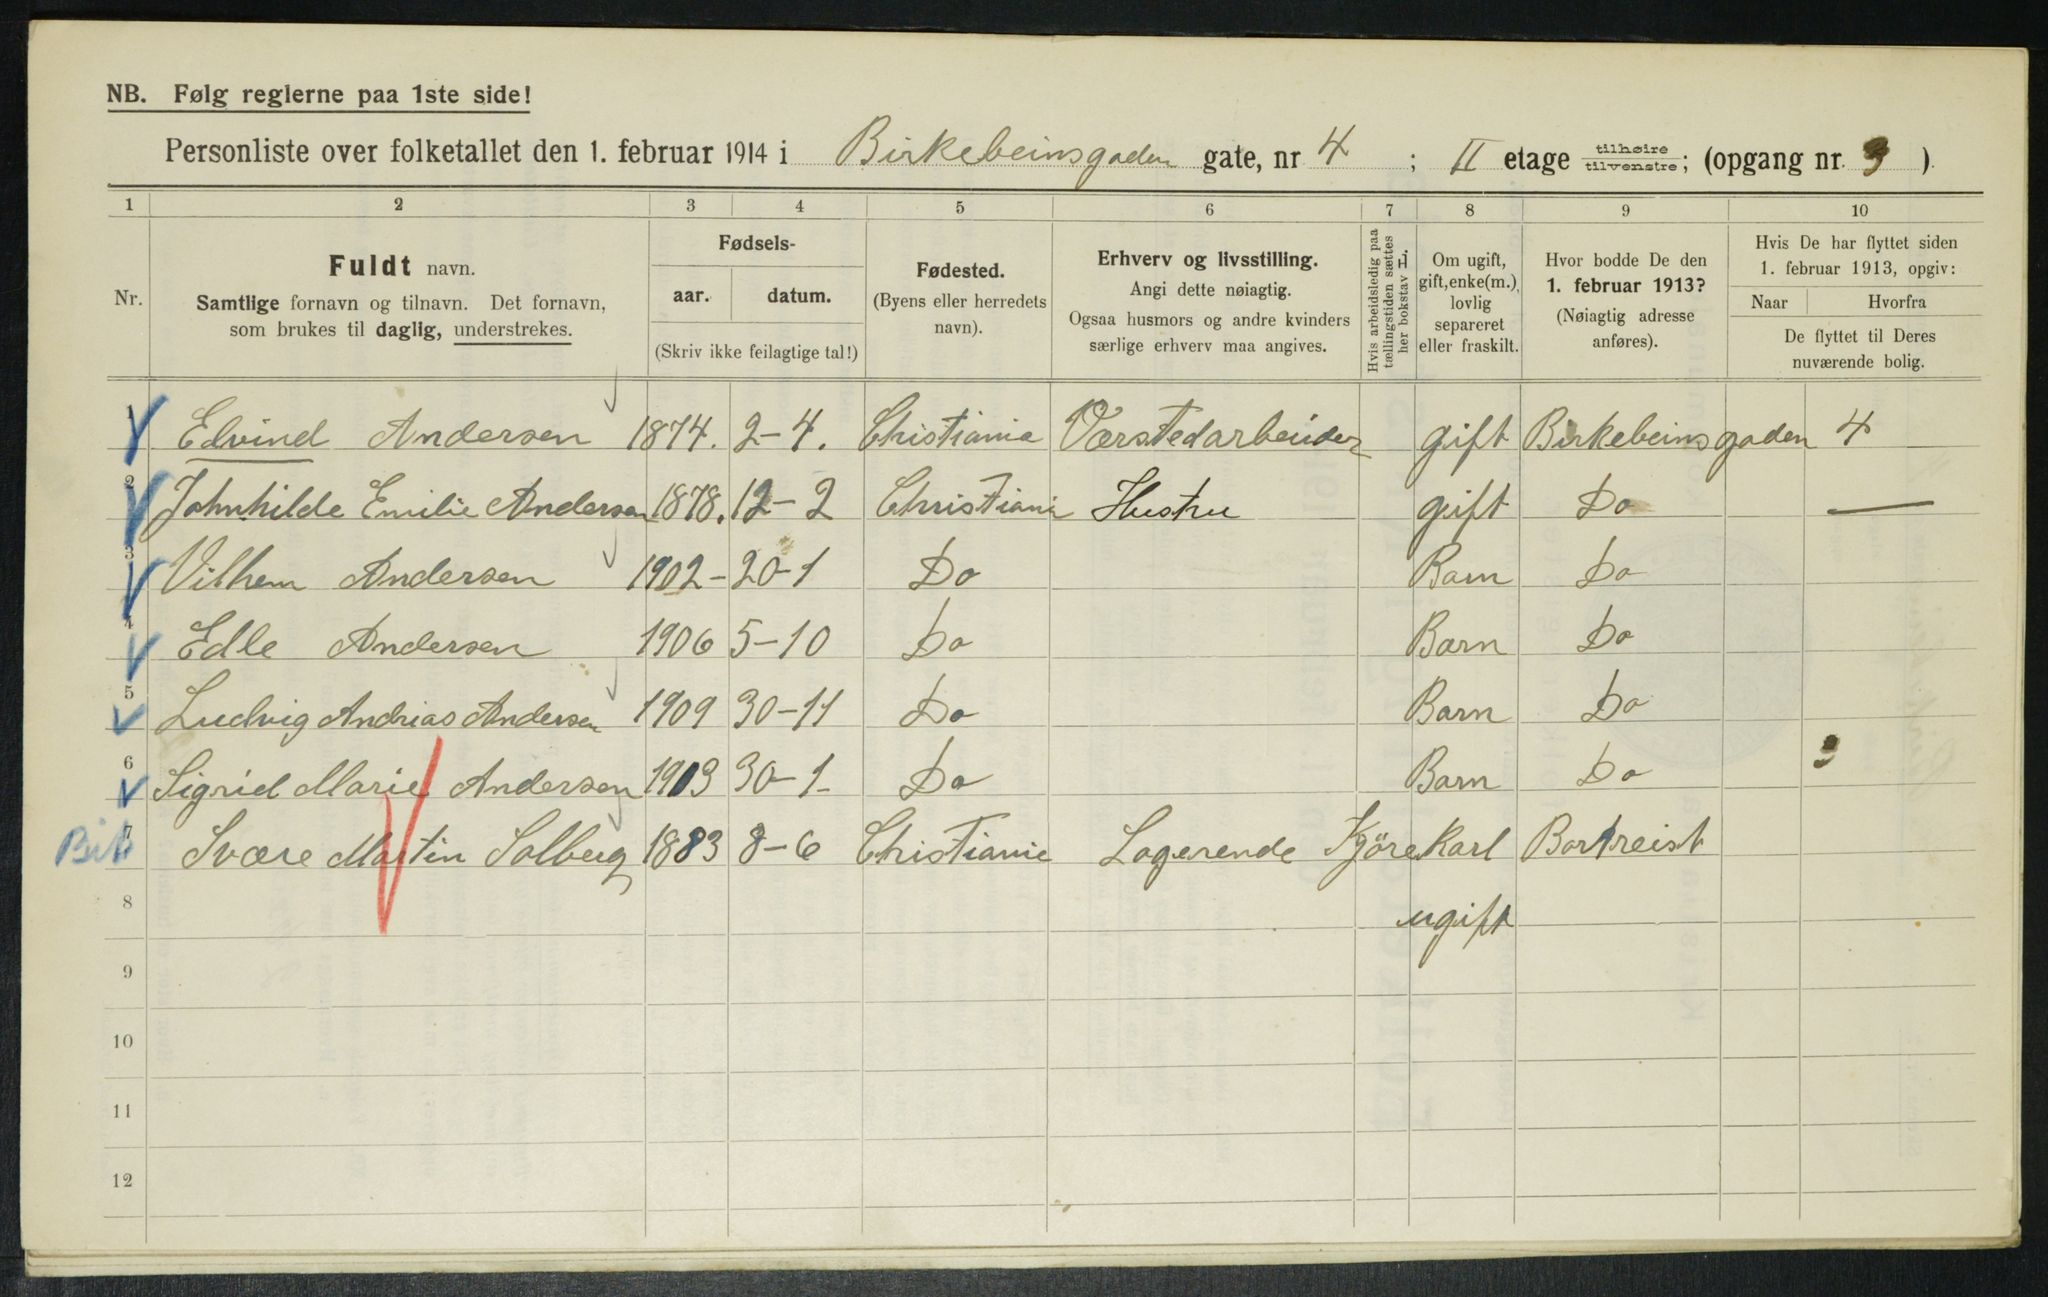 NB. Følg reglerne paa 1ste side!
Personliste over folketallet den 1. februar 1914 i Birkebeinsgaden gate, nr 4 ; II etage tilhøire tilvenstre; (opgang nr. 3 ).
1 2 3 4 5 6 7 8 9 10
Nr.
Fuldt navn.
Samtlige fornavn og tilnavn. Det fornavn,
som brukes til daglig, understrekes.
Fødsels-
aar. datum.
(Skriv ikke feilagtige tal!)
Fødested.
(Byens eller herredets
navn).
Erhverv og livsstilling.
Angi dette nøiagtig.
Ogsaa husmors og andre kvinders
særlige erhverv maa angives.
Hvis arbeidsledig paa
tællingstiden sættes
her bokstav L.
Om ugift,
gift, enke(m.),
lovlig
separeret
eller fraskilt.
Hvor bodde De den
1. februar 1913?
(Nøiagtig adresse
anføres).
Hvis De har flyttet siden
1. februar 1913, opgiv:
Naar Hvorfra
De flyttet til Deres
nuværende bolig.
1 Edvind Andersen 1874. 2-4. Christiania Værstedarbeider gift Birkebeinsgaden 4
2 Johnhilde Emilie Andersen 1878. 12-2 Christiania Hustru gift Do —
3 Vilhem Andersen 1902- 20-1 Do Barn Do
4 Edle Andersen 1906 5-10 Do Barn Do
5 Ludvig Andrias Andersen 1909 30-11 Do Barn Do
6 Sigrid Marie Andersen 1913 30-1- Do Barn Do
7 Svære Martin Solberg 1883 8-6 Christiania Logerende Kjörekarl Bortreist
8 ugift
9
10
11
12